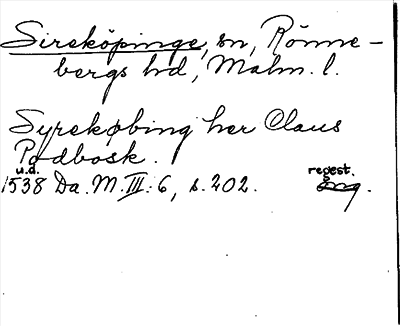 Sireköpinge, sn, Rönne-
bergs hd, Malm. l.
Syrekøbing her Claus
Podbosk.
u.d. regest.
1538 Da. M. III: 6, s. 202.